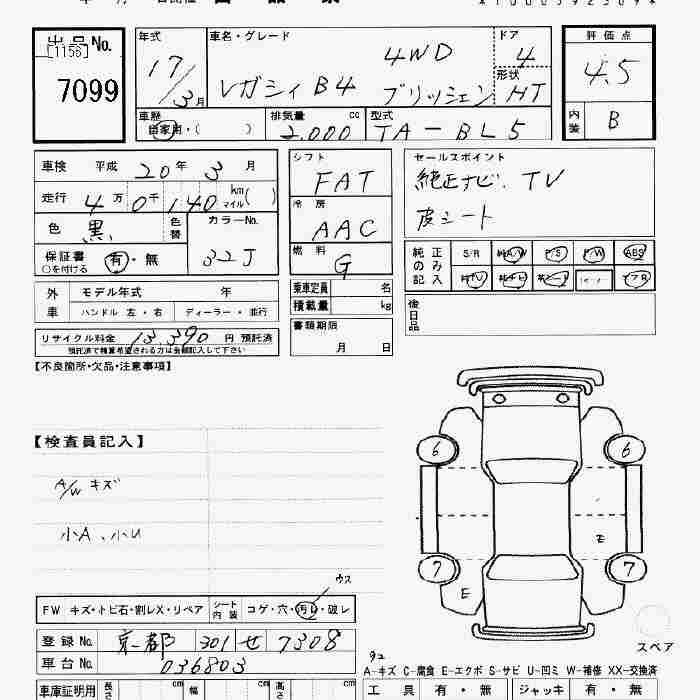 出品No.
[1156]
7099
年式
17/3月
車名・グレード
4WD
レガシィB4 ブリッシェン
ドア
4
形状
HT
評価点
4.5
内装
B
車歴
自家用・( )
排気量 cc
2,000
型式
TA-BL5
車検 平成 20年 3月
走行 4万0千140 km マイル( )
色 黒 色替
カラーNo.
32J
保証書 有・無
○を付ける
シフト
FAT
冷房
AAC
燃料
G
セールスポイント
純正ナビ、TV
皮シート
純正のみ記入
S/R A/W P/S P/W ABS
TV ナビ エアB
後日品
外車
モデル年式 年
ハンドル 左・右 ディーラー・並行
乗車定員 名
積載量 kg
書類期限
月 日
リサイクル料金 13,390 円 預託済
預託済で精算希望される方は金額記入して下さい
【不良箇所・欠品・注意事項】
【検査員記入】
A/W キズ
小A、小U
ウス
FW キズ・トビ石・割レX・リペア
シート内装 コゲ・穴・汚レ・破レ
登録No. 京都 301 せ 7308
車台No. 036803
車庫証明用 長さ cm 幅 cm 高さ cm
6
6
7
7
E
E
スペア
A-キズ C-腐食 E-エクボ S-サビ U-凹ミ W-補修 XX-交換済
工具 有・無 ジャッキ 有・無